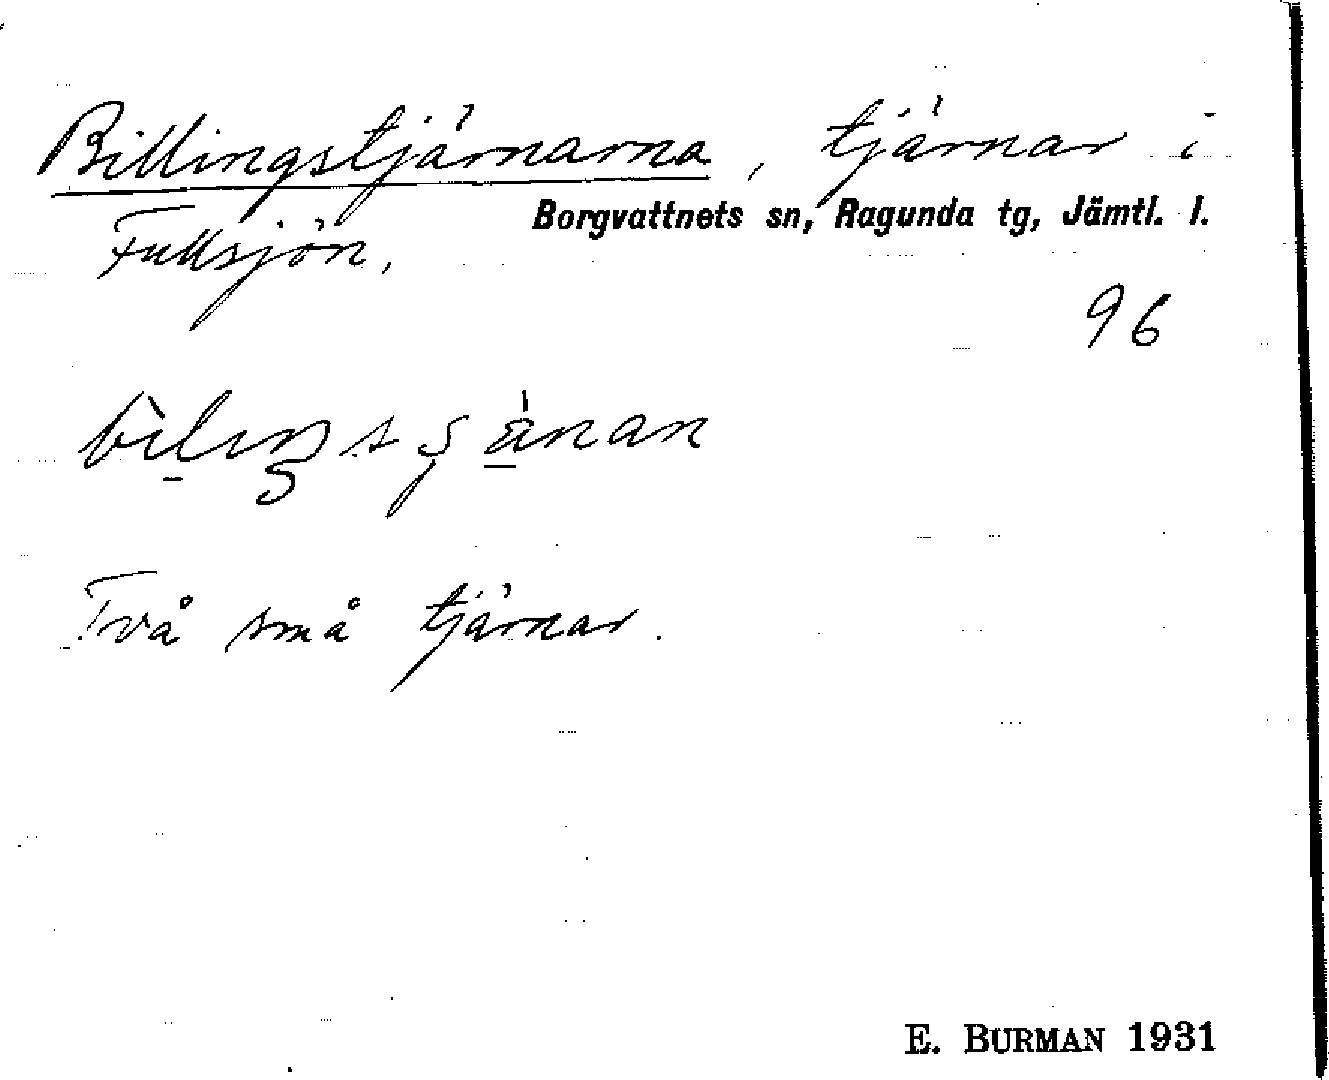 Billingstjärnarna, tjärnar i
Borgvattnets sn, Ragunda tg, Jämtl. l.
Fullsjön,
96
Två små tjärnar.
E. BURMAN 1931